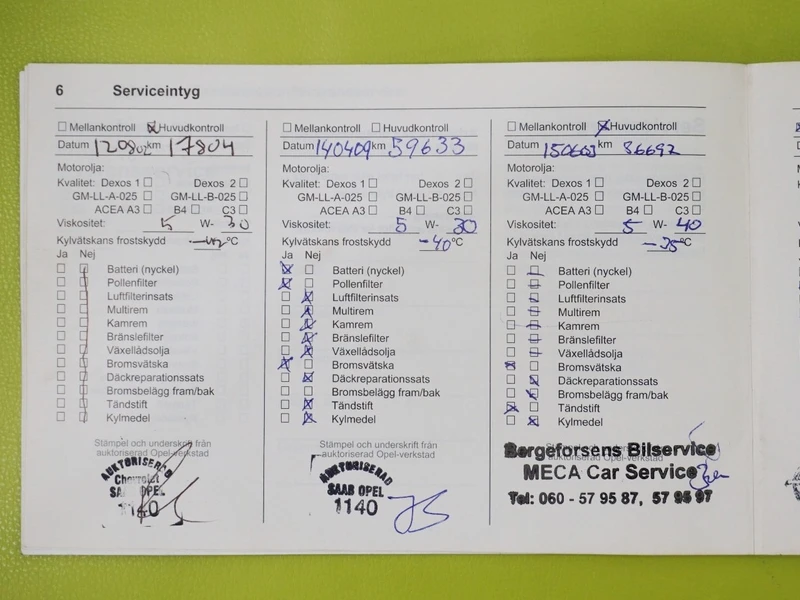 6 Serviceintyg
Mellankontroll Huvudkontroll
Datum 120802 km 17804
Motorolja:
Kvalitet: Dexos 1 Dexos 2
GM-LL-A-025 GM-LL-B-025
ACEA A3 B4 C3
Viskositet: 5 W- 30
Kylvätskans frostskydd °C
Ja Nej
Batteri (nyckel)
Pollenfilter
Luftfilterinsats
Multirem
Kamrem
Bränslefilter
Växellådsolja
Bromsvätska
Däckreparationssats
Bromsbelägg fram/bak
Tändstift
Kylmedel
Stämpel och underskrift från
auktoriserad Opel-verkstad
AUKTORISERAD
Chevrolet
SAAB OPEL
1140
Mellankontroll Huvudkontroll
Datum 140409 km 59633
Motorolja:
Kvalitet: Dexos 1 Dexos 2
GM-LL-A-025 GM-LL-B-025
ACEA A3 B4 C3
Viskositet: 5 W- 30
Kylvätskans frostskydd -40 °C
Ja Nej
Batteri (nyckel)
Pollenfilter
Luftfilterinsats
Multirem
Kamrem
Bränslefilter
Växellådsolja
Bromsvätska
Däckreparationssats
Bromsbelägg fram/bak
Tändstift
Kylmedel
Stämpel och underskrift från
auktoriserad Opel-verkstad
AUKTORISERAD
SAAB OPEL
1140
Mellankontroll Huvudkontroll
Datum km 86692
Motorolja:
Kvalitet: Dexos 1 Dexos 2
GM-LL-A-025 GM-LL-B-025
ACEA A3 B4 C3
Viskositet: 5 W- 40
Kylvätskans frostskydd -35 °C
Ja Nej
Batteri (nyckel)
Pollenfilter
Luftfilterinsats
Multirem
Kamrem
Bränslefilter
Växellådsolja
Bromsvätska
Däckreparationssats
Bromsbelägg fram/bak
Tändstift
Kylmedel
Stämpel och underskrift från
auktoriserad Opel-verkstad
Bergeforsens Bilservice
MECA Car Service
Tel: 060 - 57 95 87, 57 95 97